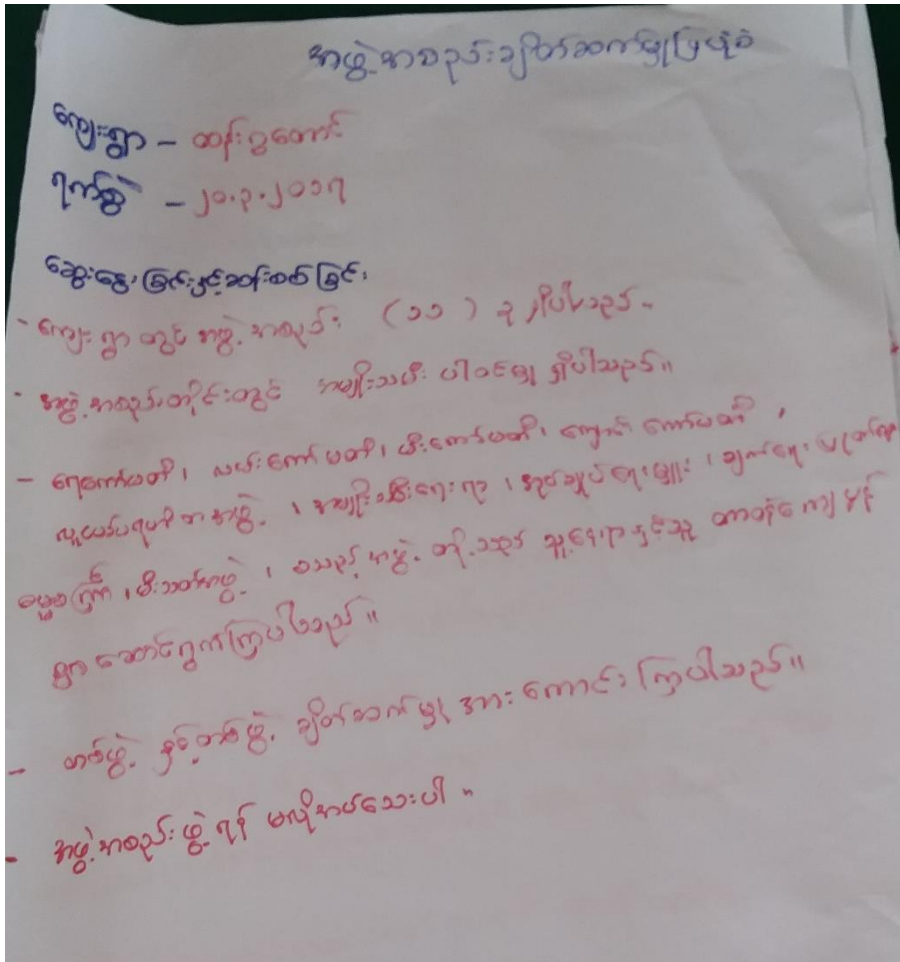 အဖွဲ့အစည်းချိတ်ဆက်မှုပြပုံစံ
ကျေးရွာ – ထန်းဂူတောင်
ရက်စွဲ – ၂၀.၃.၂၀၁၇
ဆွေးနွေးခြင်းနှင့်ဆန်းစစ်ခြင်း
- ကျေးရွာတွင် အဖွဲ့အစည်း (၁၁) ခု ရှိပါသည်။
- အဖွဲ့အစည်းတိုင်းတွင် အမျိုးသမီး ပါဝင်မှု ရှိပါသည်။
- ရေကော်မတီ၊ လမ်းကော်မတီ၊ မီးကော်မတီ၊ ကျောင်းကော်မတီ၊
အဖွဲ့၊ အမျိုးသမီးရေးရာ၊ အုပ်ချုပ်ရေးမှူး၊
မီးသတ်အဖွဲ့၊ စသည့်အဖွဲ့တို့သည် သူ့နေရာနှင့်သူ တာဝန်ကျေပွန်
စွာ ဆောင်ရွက်ကြပါသည်။
- တစ်ဖွဲ့နှင့်တစ်ဖွဲ့ ချိတ်ဆက်မှု အားကောင်းကြပါသည်။
- အဖွဲ့အစည်းဖွဲ့ရန် မလိုအပ်သေးပါ။